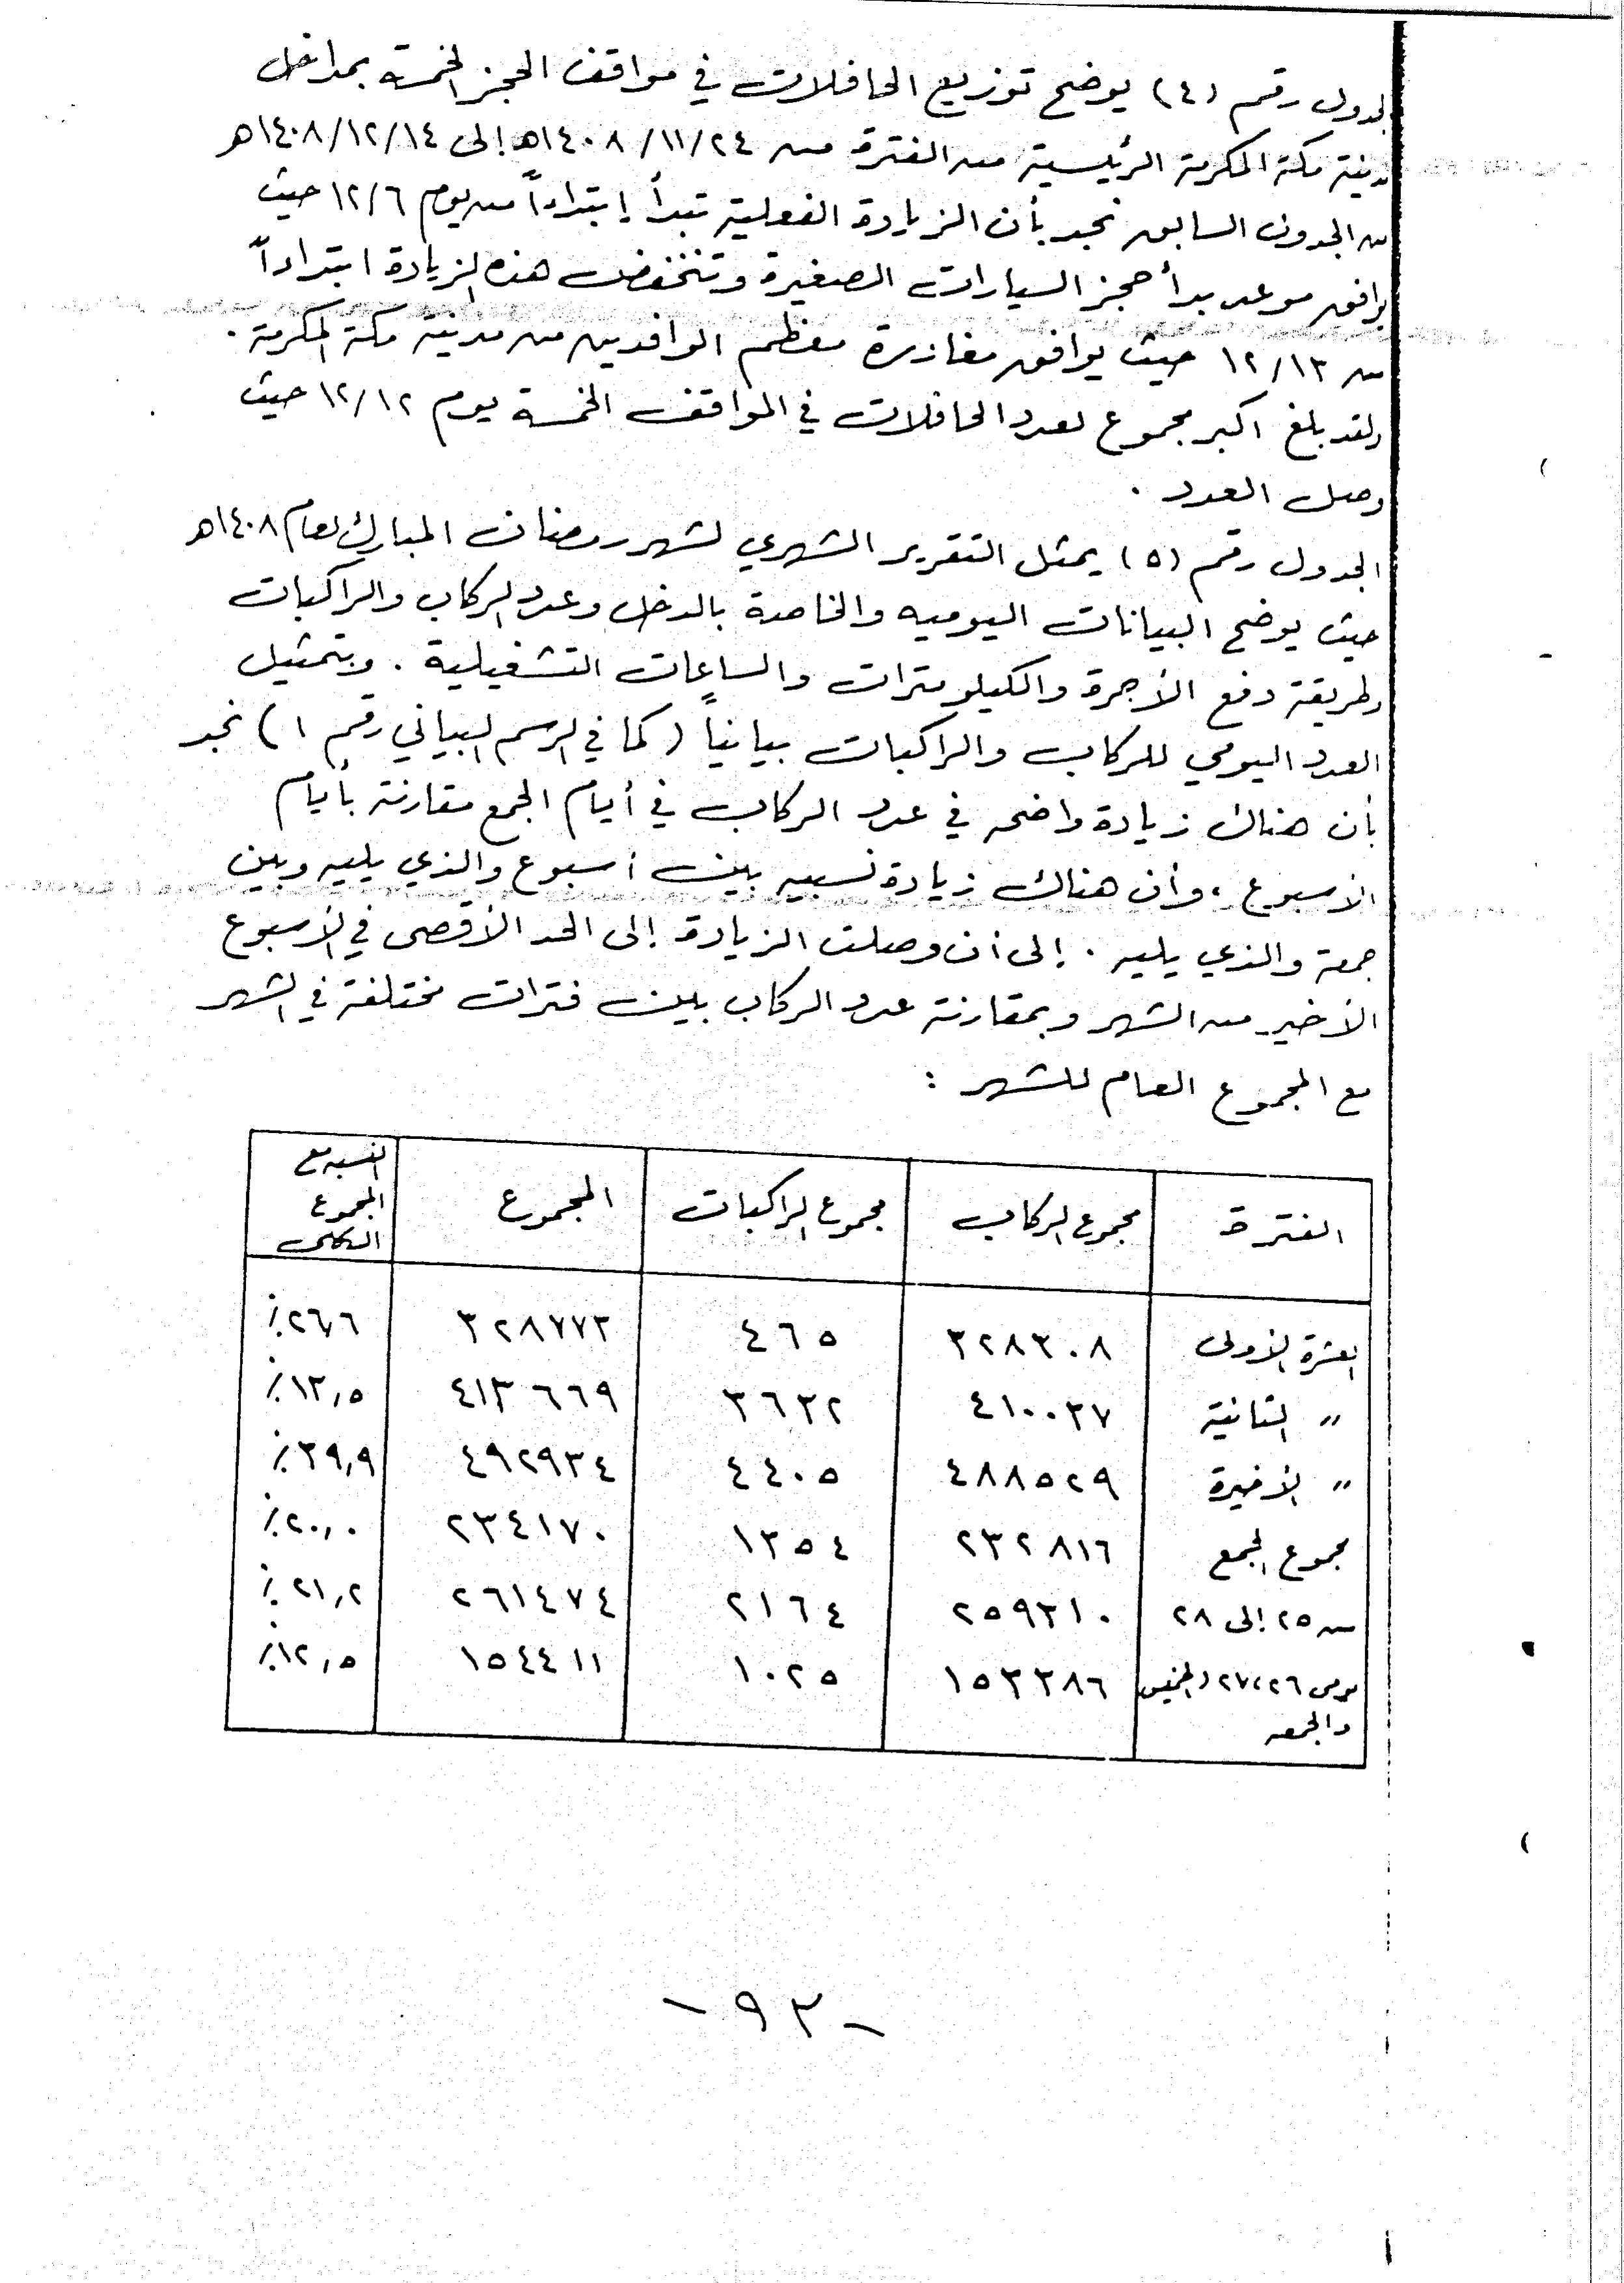 لجدول رقم (٤) يوضح توزيع الحافلات في مواقف الحجز الخمسة بمداخل
مدينة مكة المكرمة الرئيسية من الفترة من ١٤٠٨/١١/٢٤هـ إلى ١٤٠٨/١٢/١٤هـ
من الجدول السابق نجد بأن الزيادة الفعلية تبدأ إبتداءاً من يوم ١٢/٦ حيث
يوافق موعد بدأ حجز السيارات الصغيرة وتنخفض هذه الزيادة ابتداءاً
من ١٢/١٣ حيث يوافق مغادرة معظم الوافدين من مدينة مكة المكرمة .
ولقد بلغ اكبر مجموع لعدد الحافلات في المواقف الخمسة يوم ١٢/١٢ حيث
وصل العدد .
الجدول رقم (٥) يمثل التقرير الشهري لشهر رمضان المبارك لعام ١٤٠٨هـ
حيث يوضح البيانات اليوميه والخاصة بالدخل وعدد الركاب والراكبات
وطريقة دفع الأجرة والكيلومترات والساعات التشغيلية . وبتمثيل
العدد اليومي للركاب والراكبات بيانياً (كما في الرسم البياني رقم ١) نجد
بأن هناك زيادة واضحه في عدد الركاب في أيام الجمع مقارنة بأيام
الأسبوع ، وأن هناك زيادة نسبيه بين أسبوع والذي يليه وبين
جمعة والذي يليه . إلى أن وصلت الزيادة إلى الحد الأقصى في الأسبوع
الأخير من الشهر وبمقارنة عدد الركاب بين فترات مختلفة في الشهر
مع المجموع العام للشهر :
الفترة مجموع الركاب مجموع الراكبات المجموع النسبه مع المجموع الكلى
العشرة الأولى ٣٢٨٣٠٨ ٤٦٥ ٣٢٨٧٧٣ ٢٦,٦٪
〃 الثانية ٤١٠٠٣٧ ٣٦٣٢ ٤١٣٦٦٩ ١٣,٥٪
〃 الأخيرة ٤٨٨٥٢٩ ٤٤٠٥ ٤٩٢٩٣٤ ٣٩,٩٪
مجموع الجمع ٢٣٢٨١٦ ١٣٥٤ ٢٣٤١٧٠ ٢٠,٠٪
من ٢٥ إلى ٢٨ ٢٥٩٣١٠ ٢١٦٤ ٢٦١٤٧٤ ٢١,٢٪
يومى ٢٦،٢٧ الخميس ١٥٣٣٨٦ ١٠٢٥ ١٥٤٤١١ ١٢,٥٪
والجمعه
- ٩٣ -